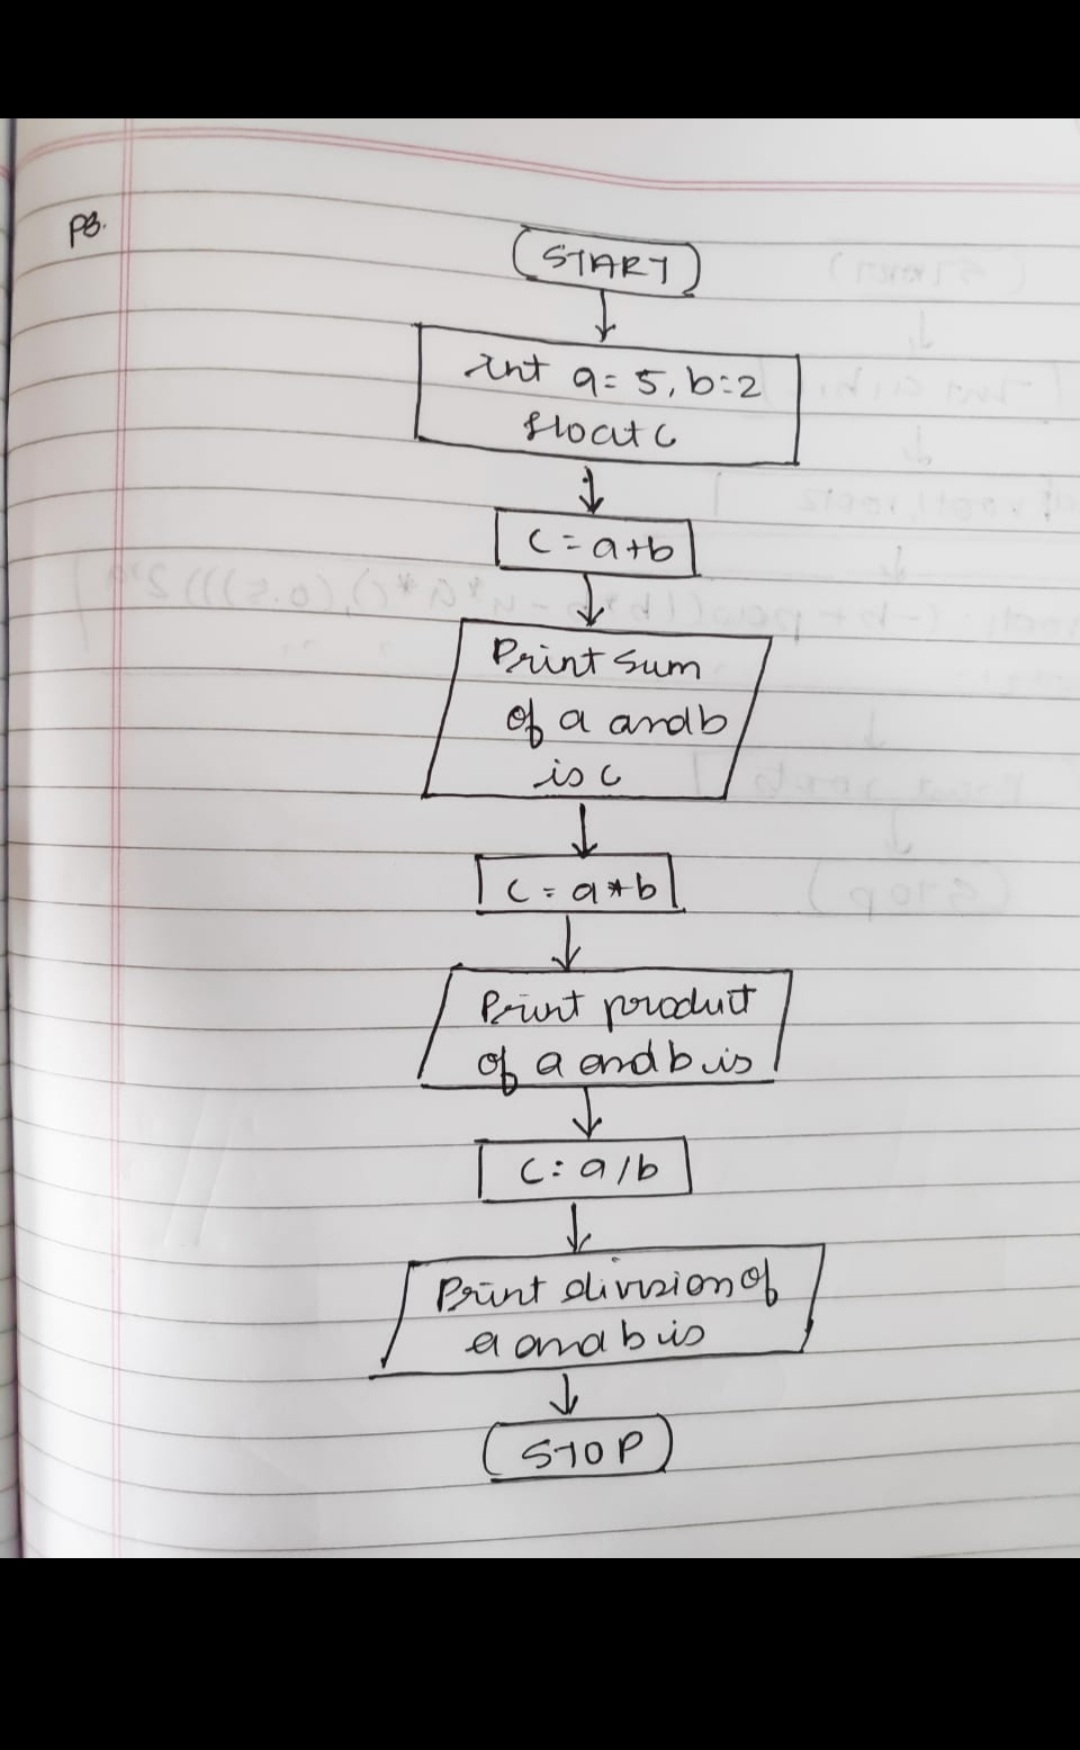 P3.
START
int a=5, b=2
float c
c=a+b
Print sum
of a and b
is c
c=a*b
Print product
of a and b is
c=a/b
Print division of
a and b is
STOP